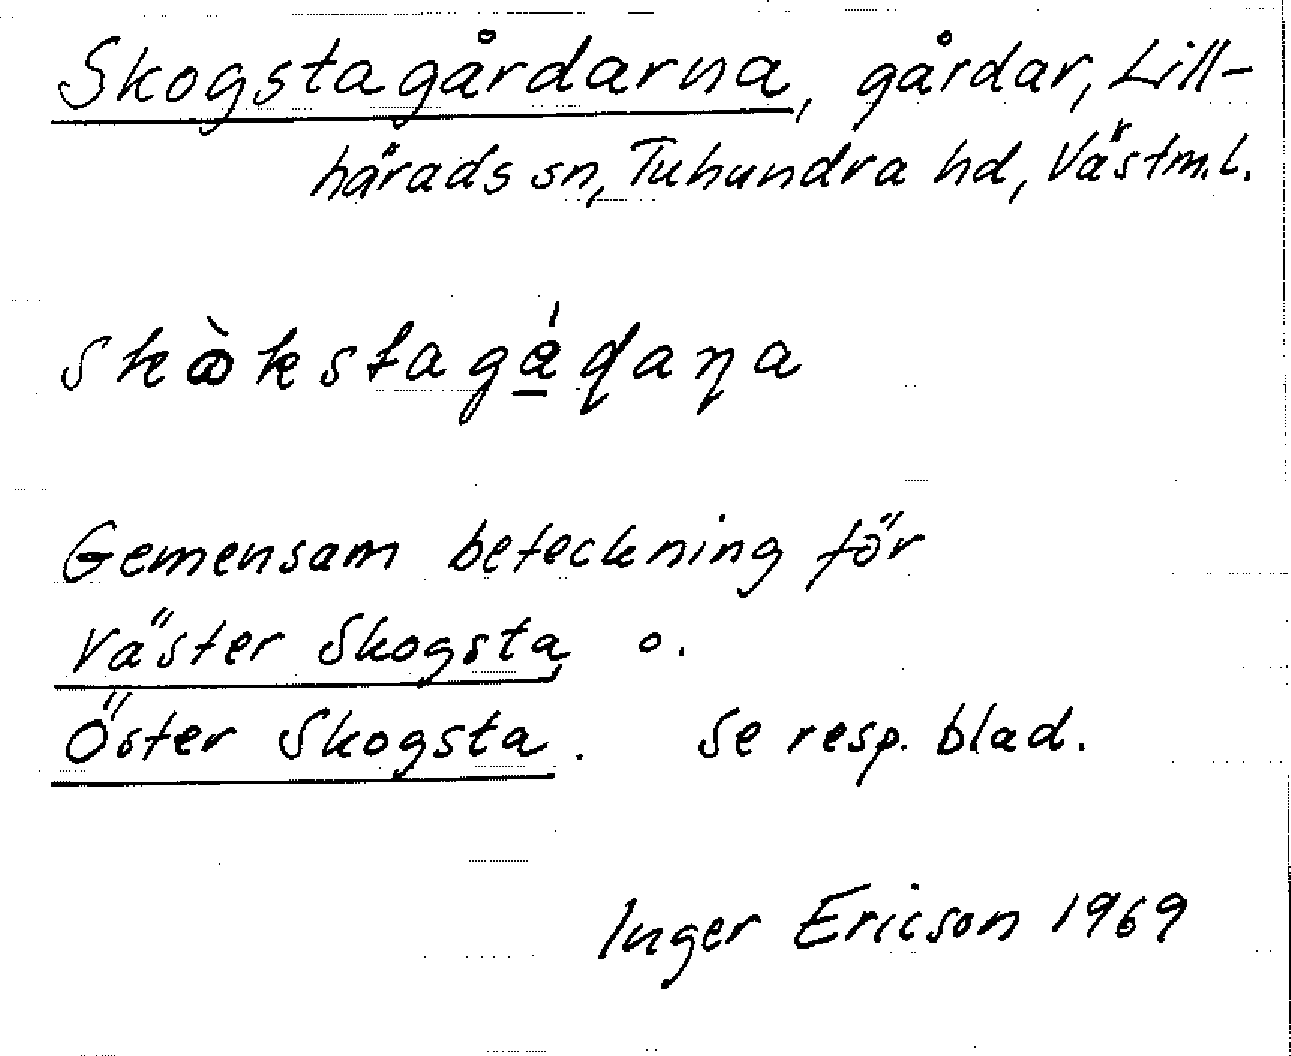 Skogstagårdarna, gårdar, Lill-
härads sn, Tuhundra hd, Västm.l.
Gemensam beteckning för
Väster Skogsta, o.
Öster Skogsta. Se resp. blad.
Inger Ericson 1969